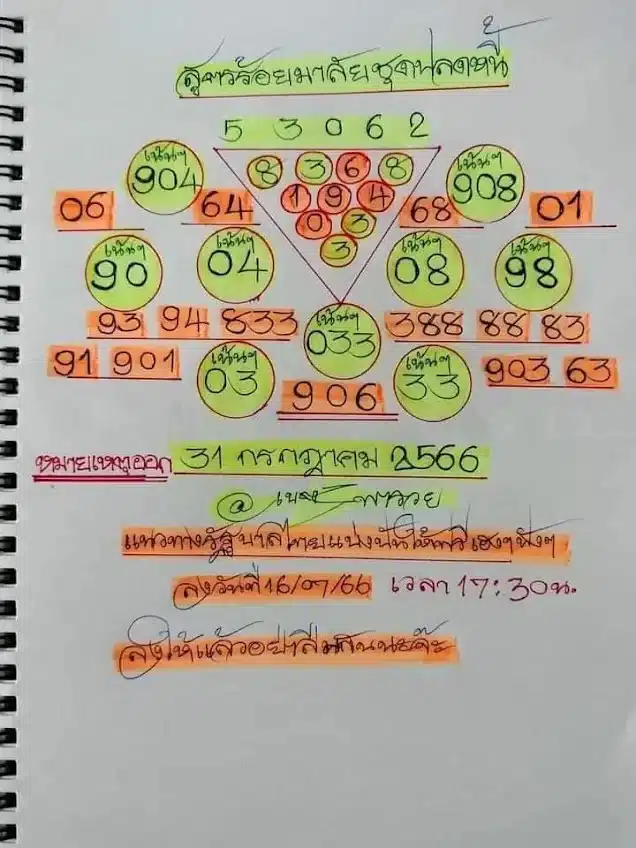 สูตรร้อยมาลัยชุดปลดหนี้
5 3 0 6 2
8 3 6 8
1 9 4
0 3
3
เน้นๆ 904
เน้นๆ 908
06 64 68 01
เน้นๆ 90
เน้นๆ 04
เน้นๆ 08
เน้นๆ 98
93 94 833
เน้นๆ 033
388 88 83
91 901
เน้นๆ 03
906
เน้นๆ 33
903 63
หมายเหตุออก 31 กรกฎาคม 2566
@
แนวทางรัฐบาลไทยแบ่งปันให้ฟรีเฮงๆปังๆ
ลงวันที่ 16/07/66 เวลา 17:30น.
ลงให้แล้วอย่าลืมสนนะค๊ะ